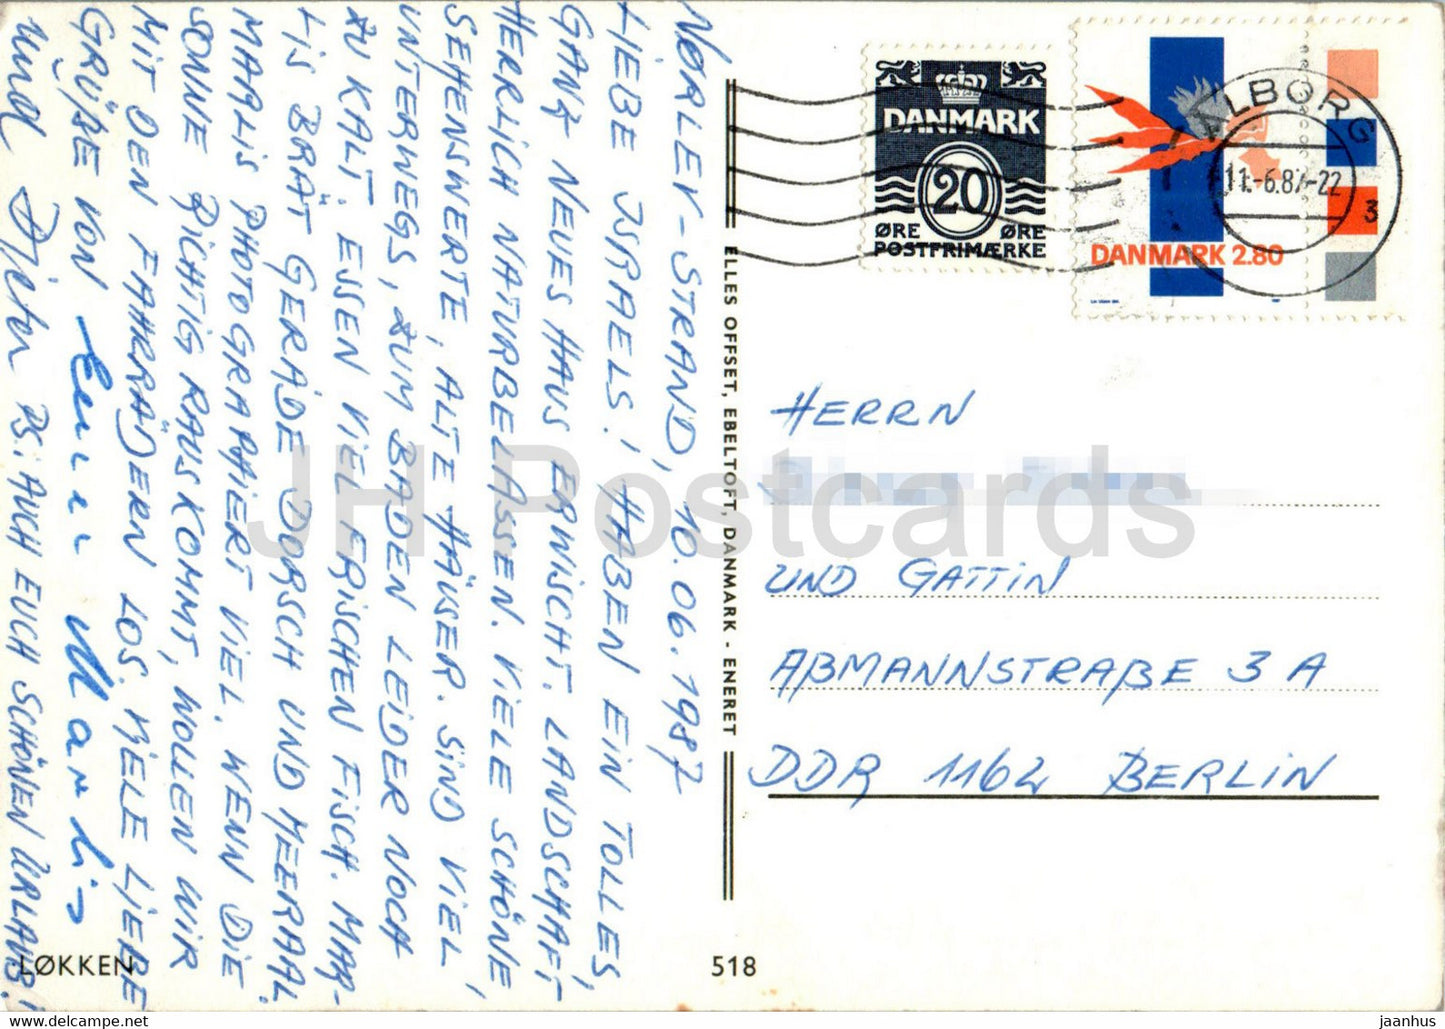 NØRLEV-STRAND, 10.06.1987
LIEBE ISRAELS! HABEN EIN TOLLES,
GANZ NEUES HAUS ERWISCHT. LANDSCHAFT
HERRLICH NATURBELASSEN. VIELE SCHÖNE
SEHENSWERTE, ALTE HÄUSER. SIND VIEL
UNTERWEGS, ZUM BADEN LEIDER NOCH
ZU KALT. ESSEN VIEL FRISCHEN FISCH. MAR-
LIS BRÄT GERADE DORSCH UND MEERAAL.
MARLIS PHOTOGRAPHIERT VIEL. WENN DIE
SONNE RICHTIG RAUSKOMMT, WOLLEN WIR
MIT DEN FAHRRÄDERN LOS. VIELE LIEBE
GRÜßE VON Eurer Marlis
und Dieter PS: AUCH EUCH SCHÖNEN URLAUB!
LØKKEN
518
ELLES OFFSET, EBELTOFT, DANMARK - ENERET
DANMARK
20
ØRE ØRE
POSTFRIMÆRKE
DANMARK 2.80
AALBORG
11.-6.87-22
3
HERRN
UND GATTIN
AßMANNSTRAßE 3 A
DDR 1162 BERLIN
JH Postcards
jaanhus.com